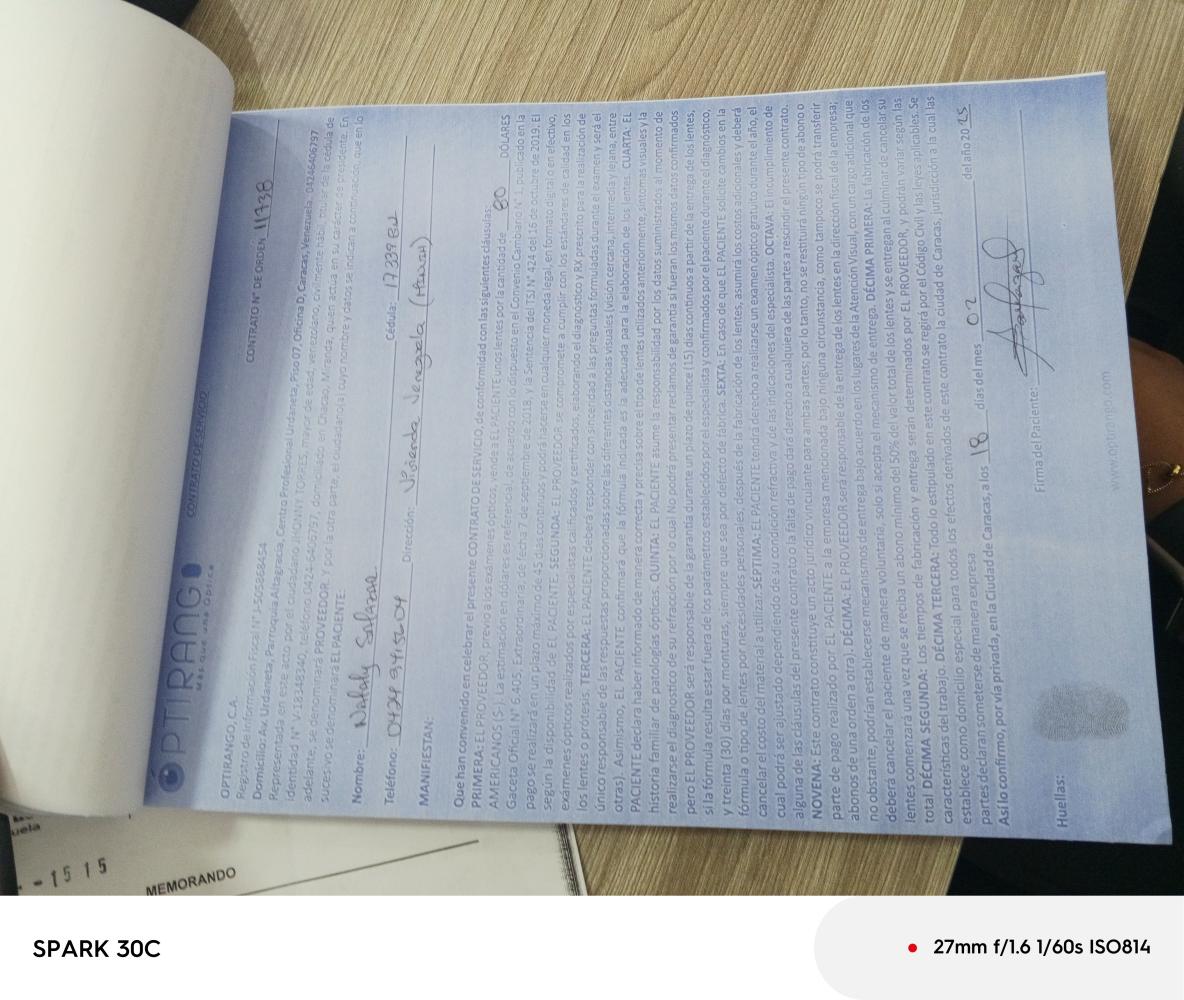 OPTIRANGO
Más que una Óptica
CONTRATO DE SERVICIO
CONTRATO N° DE ORDEN 11738
OPTIRANGO, C.A.
Registro de Información Fiscal N° J-505868454
Domicilio: Av. Urdaneta, Parroquia Altagracia, Centro Profesional Urdaneta, Piso 07, Oficina D, Caracas, Venezuela. 04246406797
Representada en este acto por el ciudadano JHONNY TORRES, mayor de edad, venezolano, civilmente hábil, titular de la cédula de
identidad N° V-18334840, teléfono 0424-6406797, domiciliado en Chacao, Miranda, quien actúa en su carácter de presidente. En
adelante, se denominará PROVEEDOR. Y por la otra parte, el ciudadano/a (cuyo nombre y datos se indican a continuación, que en lo
sucesivo se denominará EL PACIENTE:
Nombre: Nataly Salazar
Teléfono: 0424 9415204 Dirección: Vivienda Venezuela (Havsa) Cédula: 17339782
MANIFIESTAN:
Que han convenido en celebrar el presente CONTRATO DE SERVICIO, de conformidad con las siguientes cláusulas:
PRIMERA: EL PROVEEDOR, previo a los exámenes ópticos, vende a EL PACIENTE unos lentes por la cantidad de 80 DÓLARES
AMERICANOS ($-). La estimación en dólares es referencial, de acuerdo con lo dispuesto en el Convenio Cambiario N° 1, publicado en la
Gaceta Oficial N° 6.405, Extraordinaria, de fecha 7 de septiembre de 2018, y la Sentencia del TSJ N° 424 del 16 de octubre de 2019. El
pago se realizará en un plazo máximo de 45 días continuos y podrá hacerse en cualquier moneda legal, en formato digital o en efectivo,
según la disponibilidad de EL PACIENTE. SEGUNDA: EL PROVEEDOR se compromete a cumplir con los estándares de calidad en los
exámenes ópticos realizados por especialistas calificados y certificados, elaborando el diagnóstico y RX prescrito para la realización de
los lentes o prótesis. TERCERA: EL PACIENTE deberá responder con sinceridad a las preguntas formuladas durante el examen y será el
único responsable de las respuestas proporcionadas sobre las diferentes distancias visuales (visión cercana, intermedia y lejana, entre
otras). Asimismo, EL PACIENTE confirmará que la fórmula indicada es la adecuada para la elaboración de los lentes. CUARTA: EL
PACIENTE declara haber informado de manera correcta y precisa sobre el tipo de lentes utilizados anteriormente, síntomas visuales y la
historia familiar de patologías ópticas. QUINTA: EL PACIENTE asume la responsabilidad por los datos suministrados al momento de
realizarse el diagnostico de su refracción por lo cual No podrá presentar reclamos de garantía si fueran los mismos datos confirmados
pero EL PROVEEDOR será responsable de la garantía durante un plazo de quince (15) días continuos a partir de la entrega de los lentes,
si la fórmula resulta estar fuera de los parámetros establecidos por el especialista y confirmados por el paciente durante el diagnóstico,
y treinta (30) días por monturas, siempre que sea por defecto de fábrica. SEXTA: En caso de que EL PACIENTE solicite cambios en la
fórmula o tipo de lentes por necesidades personales, después de la fabricación de los lentes, asumirá los costos adicionales y deberá
cancelar el costo del material a utilizar. SÉPTIMA: EL PACIENTE tendrá derecho a realizarse un examen óptico gratuito durante el año, el
cual podrá ser ajustado dependiendo de su condición refractiva y de las indicaciones del especialista. OCTAVA: El incumplimiento de
alguna de las cláusulas del presente contrato o la falta de pago dará derecho a cualquiera de las partes a rescindir el presente contrato.
NOVENA: Este contrato constituye un acto jurídico vinculante para ambas partes; por lo tanto, no se restituirá ningún tipo de abono o
parte de pago realizado por EL PACIENTE a la empresa mencionada bajo ninguna circunstancia, como tampoco se podrá transferir
abonos de una orden a otra). DÉCIMA: EL PROVEEDOR será responsable de la entrega de los lentes en la dirección fiscal de la empresa;
no obstante, podrían establecerse mecanismos de entrega bajo acuerdo en los lugares de la Atención Visual, con un cargo adicional que
deberá cancelar el paciente de manera voluntaria, solo si acepta el mecanismo de entrega. DÉCIMA PRIMERA: La fabricación de los
lentes comenzará una vez que se reciba un abono mínimo del 50% del valor total de los lentes y se entregan al culminar de cancelar su
total. DÉCIMA SEGUNDA: Los tiempos de fabricación y entrega serán determinados por EL PROVEEDOR, y podrán variar según las
características del trabajo. DÉCIMA TERCERA: Todo lo estipulado en este contrato se regirá por el Código Civil y las leyes aplicables. Se
establece como domicilio especial para todos los efectos derivados de este contrato la ciudad de Caracas, jurisdicción a la cual las
partes declaran someterse de manera expresa
Así lo confirmo, por vía privada, en la Ciudad de Caracas, a los 18 días del mes 02 del año 20 25
Firma del Paciente:
Huellas:
www.optirango.com
- 15 15
MEMORANDO
SPARK 30C
27mm f/1.6 1/60s ISO814